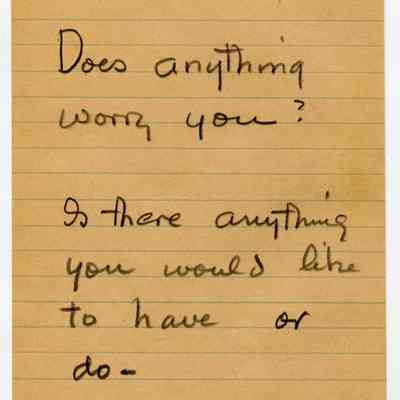 Does anything
worry you?
Is there anything
you would like
to have or
do-